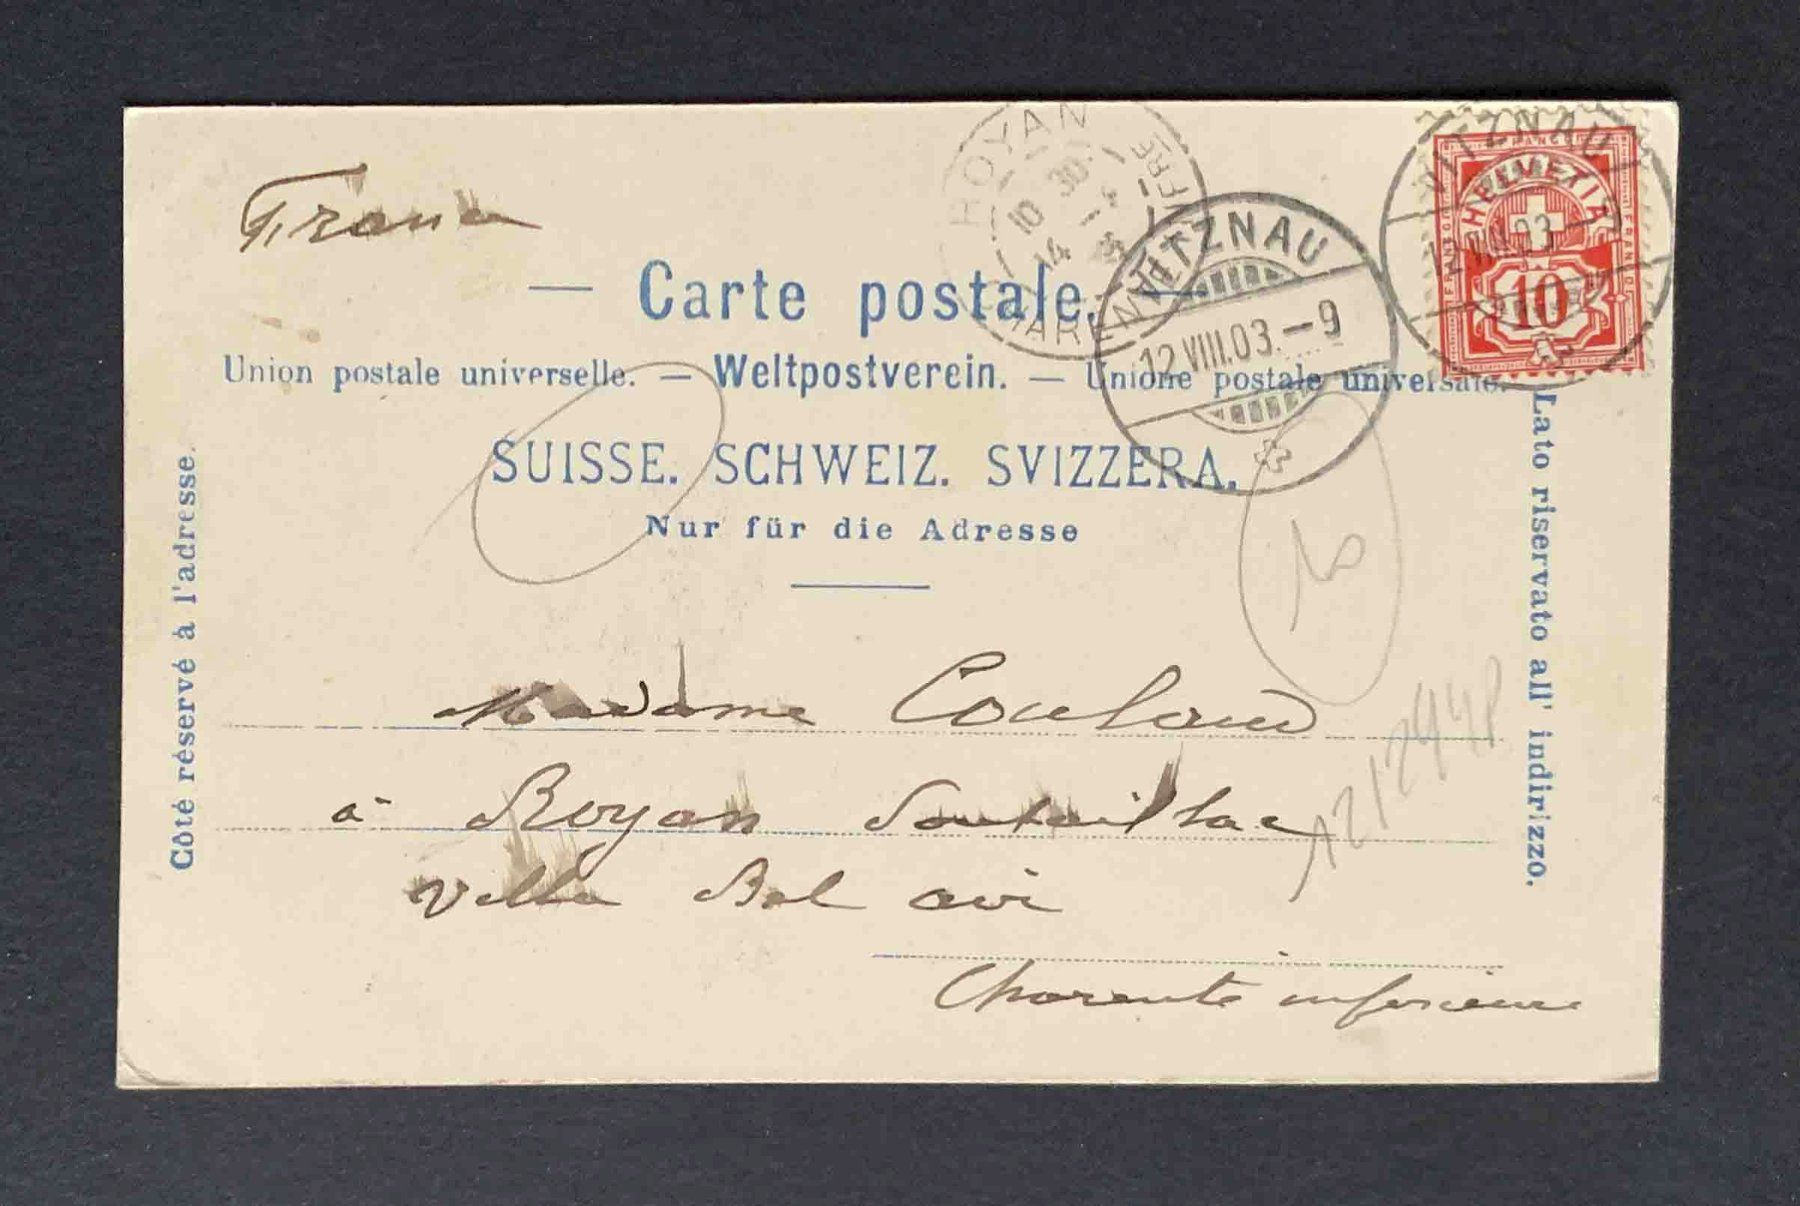 France
ROYAN
10 30
14 - 8
CHARENTE INFRE
VITZNAU
12 VIII.03.-9
VITZNAU
12 VIII.03
HELVETIA
FRANCO
10
— Carte postale. —
Union postale universelle. — Weltpostverein. — Unione postale universale.
SUISSE. SCHWEIZ. SVIZZERA.
Nur für die Adresse
Côté réservé à l'adresse.
Lato riservato all' indirizzo.
Madame Coulaud
à Royan Pontaillac
Villa Bel air
Charente inférieure